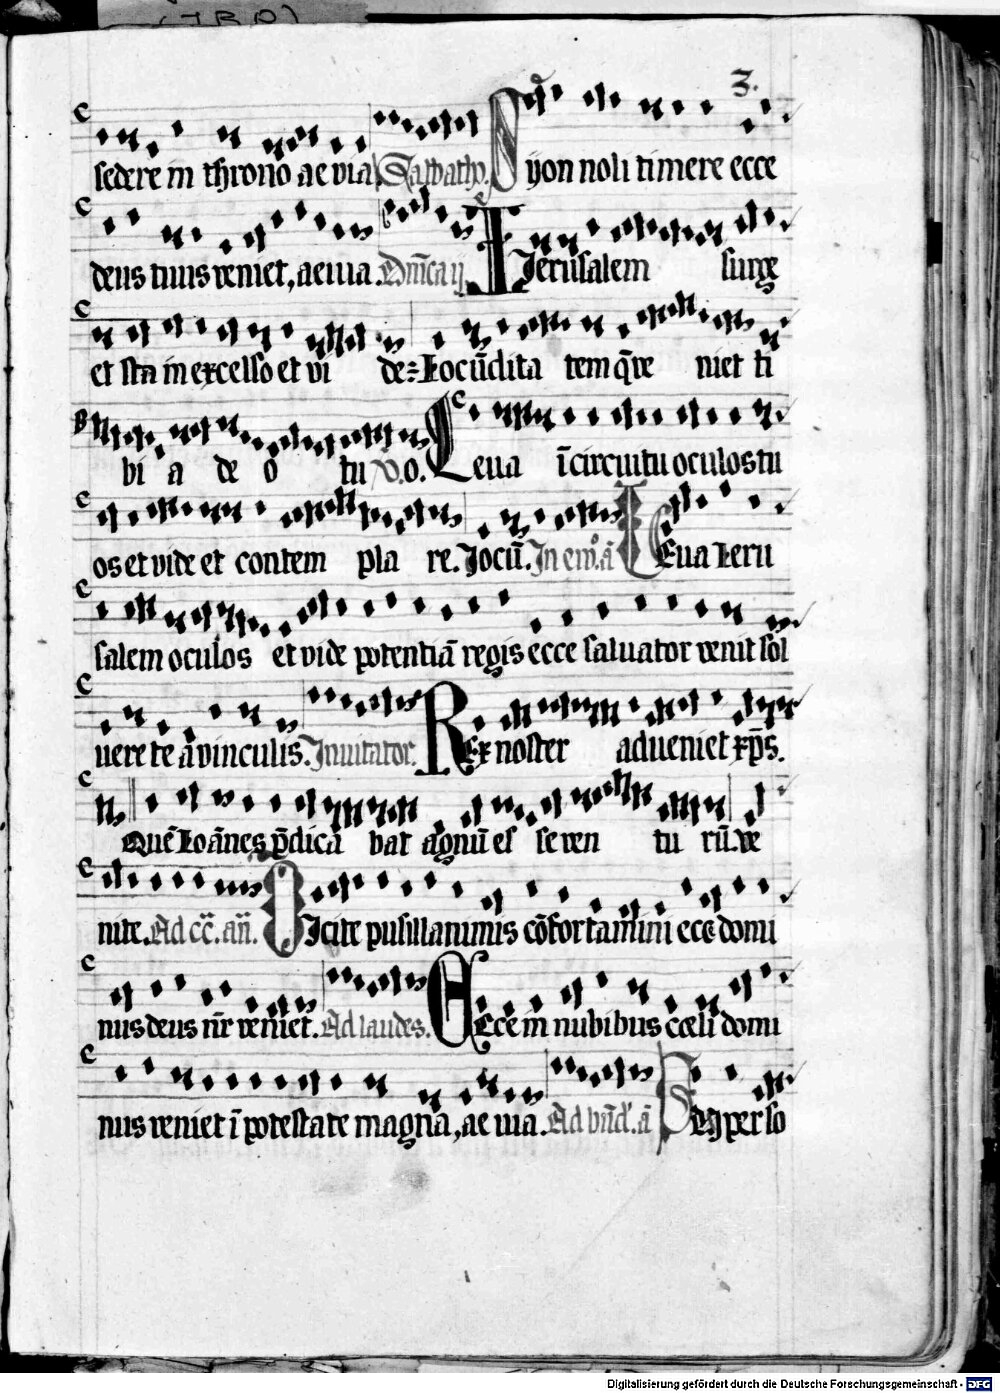 (JRP)
3.
sedere in throno ae via. Sabbatho. Syon noli timere ecce
deus tuus veniet, aeuia. Dn̄ica ij. Jerusalem surge
et sta in excelso et vi de: Iocūdita tem q̄ ve niet ti
bi a deo tuo. V. Leua ī circuitu oculos tu
os et vide et contem pla re. Jocū. In ev̄. ā Leua Ieru
salem oculos et vide potentiā regis ecce saluator venit sol
uere te a vinculis. Inuitator. Rex noster adueniet xp̄s.
Quē Ioānes p̄dica bat agnū es se ven tu rū. ve
nite. Ad cc̄. an̄. Dicite pusillanimis cōfortamini ecce domi
nus deus nr̄ veniet. Ad laudes. Ecce in nubibus coeli domi
nus veniet ī potestate magna, ae uia. Ad bn̄d'. ā Super so
Digitalisierung gefördert durch die Deutsche Forschungsgemeinschaft - DFG